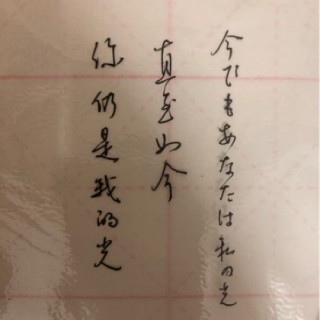 今でもあなたは私の光
直至如今
你仍是我的光